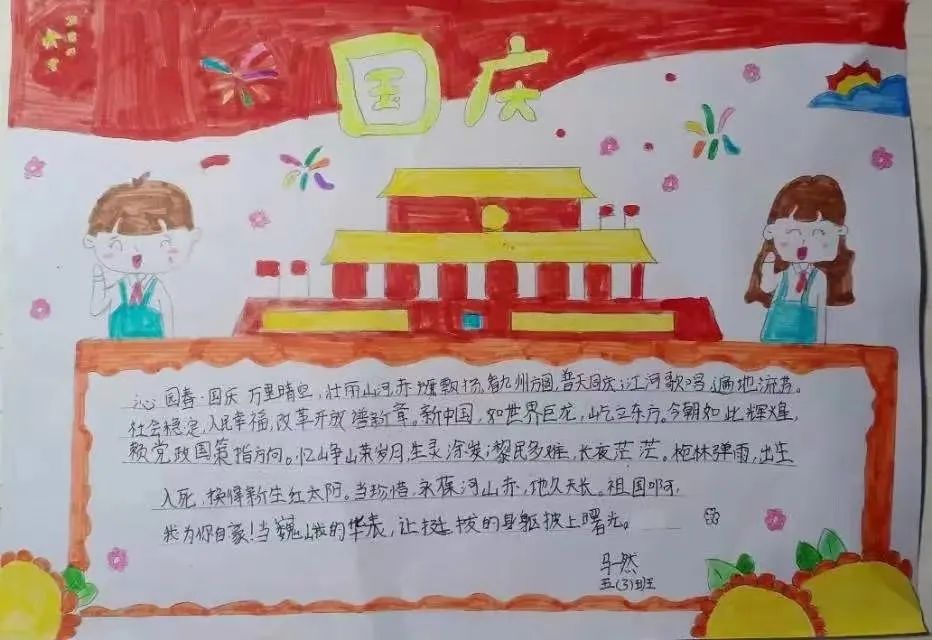 国庆
沁园春·国庆 万里晴空,壮丽山河,赤旗飘扬。九州方圆,普天同庆;江河歌唱,遍地流芳。
社会稳定,人民幸福,改革开放谱新章。新中国,如世界巨龙,屹立东方。今朝如此辉煌,
赖党政国策指方向。忆峥嵘岁月,生灵涂炭;黎民多难,长夜茫茫。枪林弹雨,出生
入死,换得新生红太阳。当珍惜,永葆河山赤,地久天长。祖国啊,
我为你自豪!当巍峨的华表,让挺拔的身躯披上曙光。
马一然
五(3)班